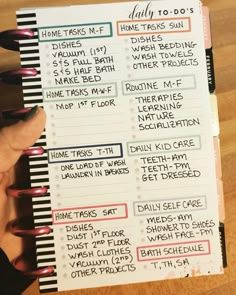 daily TO-DO'S
HOME TASKS M-F
DISHES
VACUUM (1ST)
5'S FULL BATH
5'S HALF BATH
MAKE BED
HOME TASKS M/W/F
MOP 1ST FLOOR
HOME TASKS T/TH
ONE LOAD OF WASH
LAUNDRY IN BASKETS
HOME TASKS SAT
DISHES
DUST 1ST FLOOR
DUST 2ND FLOOR
WASH CLOTHES
VACUUM (2ND)
OTHER PROJECTS
HOME TASKS SUN
DISHES
WASH BEDDING
WASH TOWELS
OTHER PROJECTS
ROUTINE M-F
THERAPIES
LEARNING
NATURE
SOCIALIZATION
DAILY KID CARE
TEETH-AM
TEETH-PM
GET DRESSED
DAILY SELF CARE
MEDS-AM
SHOWER TO SHOES
WASH FACE-PM
BATH SCHEDULE
T, TH, SA